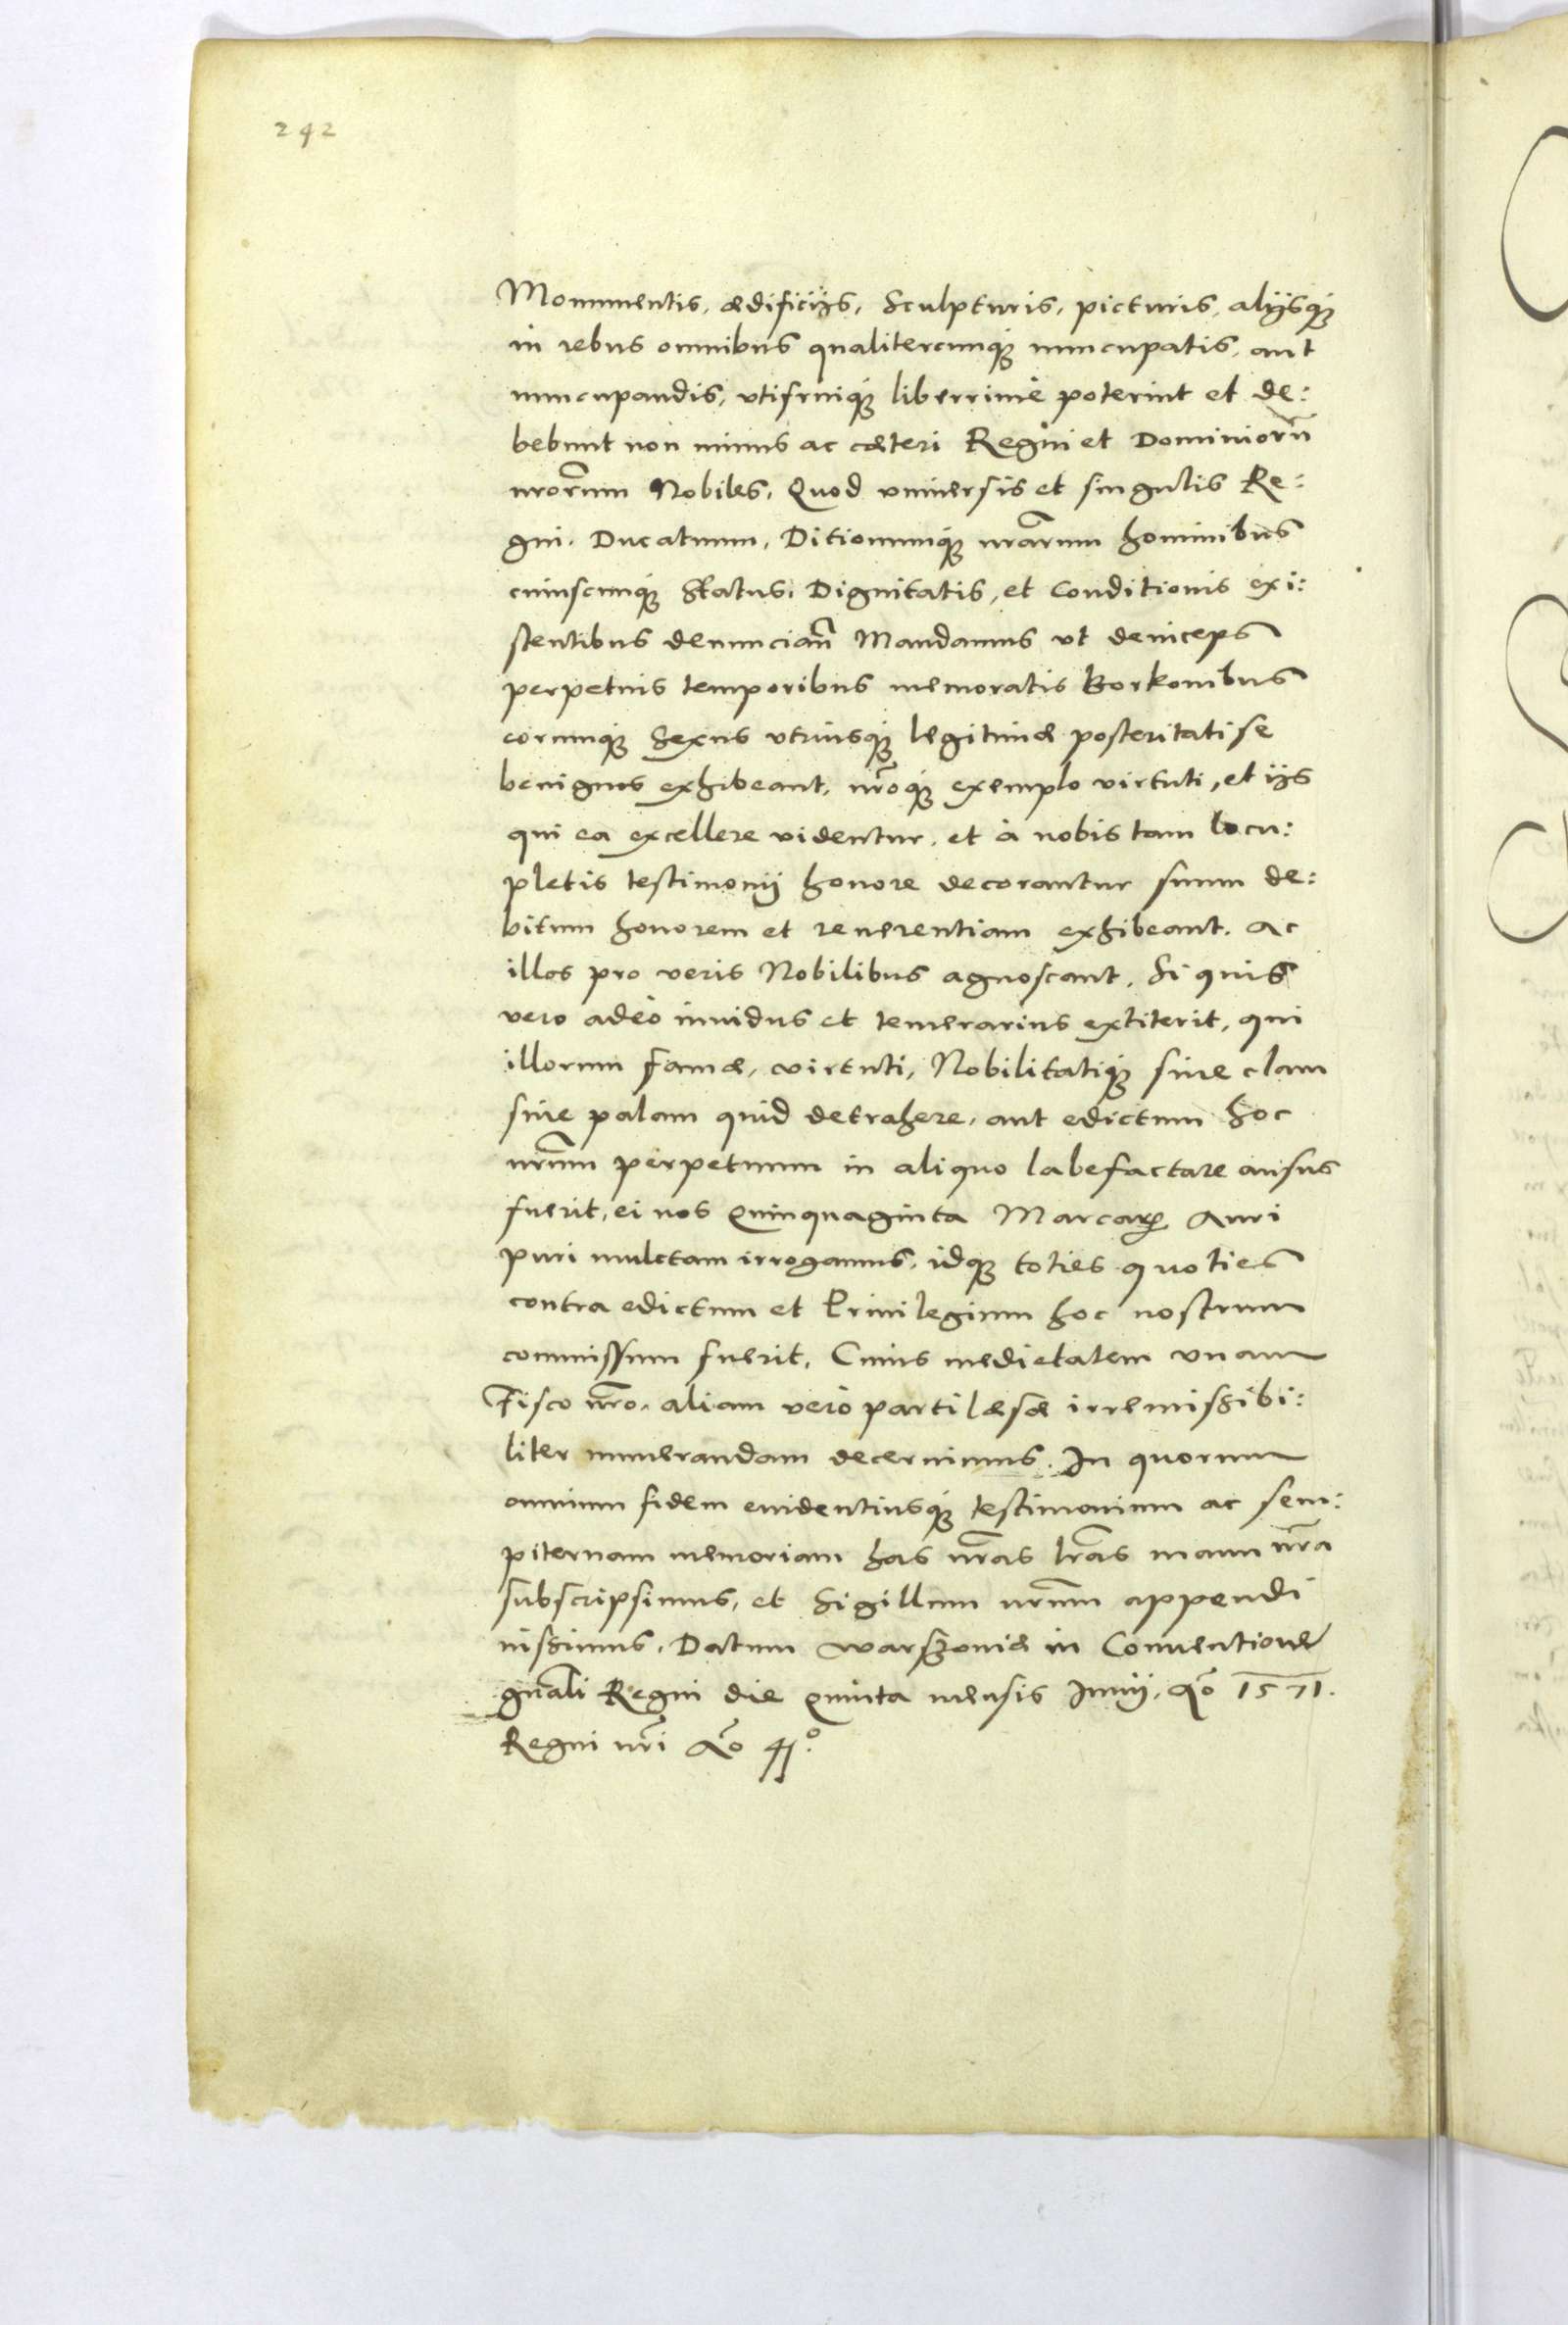 242
Monumentis, ædificijs, Sculpturis, picturis, alijsq́ꝫ
in rebus omnibus qualitercunq́ꝫ nuncupatis, aut
nuncupandis, vtifruiq́ꝫ liberrimè poterint et de:
bebunt non minus ac cæteri Regni et Dominiorũ
nr̃orum Nobiles, Quod vniuersis et singulis Re:
gni, Ducatuum, Ditionumq́ꝫ nr̃arum hominibus
cuiuscunq́ꝫ Status, Dignitatis, et Conditionis exi:
stentibus denuncian̄ Mandamus vt deinceps
perpetuis temporibus memoratis Borkonibus
eorumq́ꝫ Sexus vtriusq́ꝫ legitimæ posteritati se
benignos exhibeant, nr̃oq́ꝫ exemplo virtuti, et ijs
qui ea excellere videntur, et à nobis tam locu:
pletis testimonij honore decorantur suum de:
bitum honorem et reuerentiam exhibeant. Ac
illos pro veris Nobilibus agnoscant. Si quis
vero adeò inuidus et temerarius extiterit, qui
illorum famæ, virtuti, Nobilitatiq́ꝫ siue clam
siue palam quid detrahere, aut edictum hoc
nr̃um perpetuum in aliquo labefactare ausus
fuerit, ei nos Quinquaginta Marcaꝝ Auri
puri mulctam irrogamus, idqꝫ toties quoties
contra edictum et Priuilegium hoc nostrum
commissum fuerit, Cuius medietatem vnam
Fisco nr̃o, aliam verò parti læsæ irremissibi:
liter numerandam decernimus. In quorum
omnium fidem euidentiusq́ꝫ testimonium ac sem:
piternam memoriam has nr̃as lr̃as manu nr̃a
subscripsimus, et Sigillum nr̃um appendi
iussimus. Datum Warszouiæ in Conuentione
gn̄ali Regni die Quinta mensis Junij. Aº 1571.
Regni nr̃i Aº 41º.